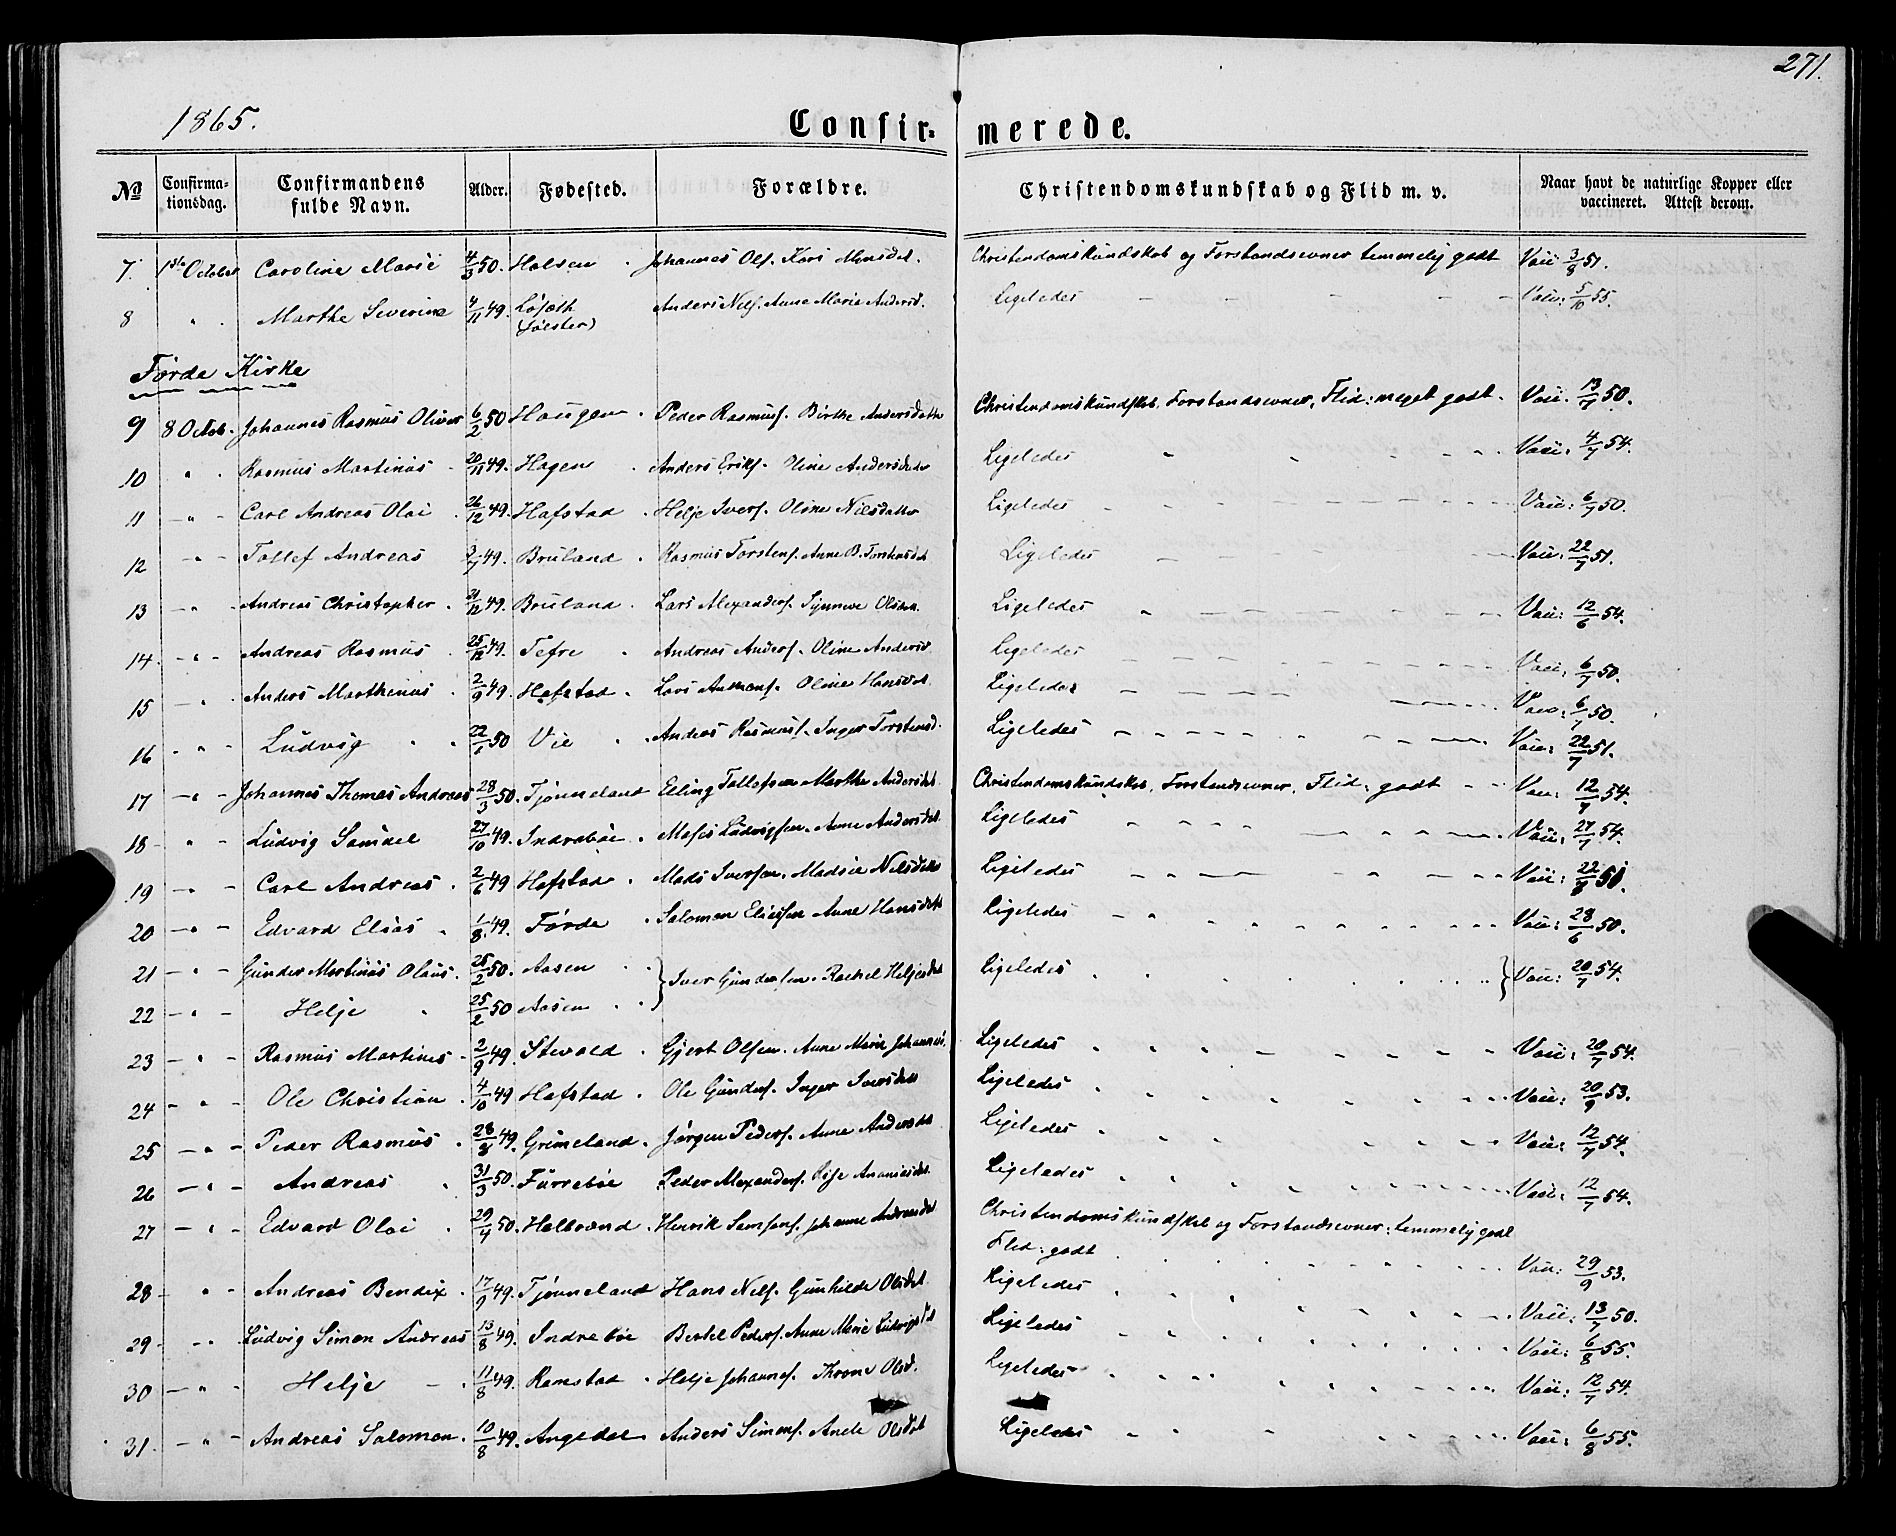 271.
1865.
Confir- merede.
№ Confirma-tionsdag. Confirmandens fulde Navn. Alder. Fødested. Forældre. Christendomskundskab og Flid m. v. Naar havt de naturlige Kopper eller vaccineret. Attest derom.
7. 1ste October Caroline Marie 4/3 50. Halsen Johannes Ols. Kari Monsdat. Christendomskundskab og Forstandsevner temmelig godt Vacc 3/8 51.
8 " Marthe Severine 4/11 49. Anders Nils. Anne Marie Andersd. Ligeledes Vacc: 5/10 55.
Førde Kirke
9 8 Octob. Johannes Rasmus Oliver 6/2 50 Haugen Peder Rasmuss. Birthe Andersdatter Christendomskundskab, Forstandsevner, Flid: meget godt Vacc. 13/7 50.
10 " Rasmus Martinus 20/11 49. Hagen Anders Eriks. Oline Andersdatter Ligeledes Vacc: 4/7 54.
11 " Carl Andreas Olai 26/12 49. Hafstad Helje Ivers. Oline Nilsdatter Ligeledes Vacc: 6/7 50.
12 " Tollef Andreas 2/7 49. Bruland Rasmus Torstens. Anne B. Torstensdat Ligeledes Vacc: 22/7 51.
13 " Andreas Christopher 21/12 49. Bruland Lars Alexanders. Synneve Olsdat. Ligeledes Vacc: 12/6 54.
14. " Andreas Rasmus 25/12 49. Tefre Andreas Anders. Oline Andersd. Ligeledes Vacc: 6/7 50.
15 " Anders Marthinus 2/9 49. Hafstad Lars Hansdat. Ligeledes Vacc: 6/7 50.
16 " Ludvig 22/1 50 Vie Andreas Rasmuss. Inger Torstensd. Ligeledes Vacc: 22/7 51.
17 " Johannes Thomas Andreas 28/3 50. Tjønneland Elling Tollefsen Marthe Andersdat. Christendomskundskab, Forstandsevner, Flid: godt Vacc: 12/7 54.
18 " Ludvig Samuel 27/10 49. Indrebøe Moses Ludvigsen. Anne Andersdat. Ligeledes Vacc: 27/7 54.
19 " Carl Andreas 2/6 49 Hafstad Mads Iversen. Madsie Nilsdatter Ligeledes Vacc: 22/7 51.
20 " Edvard Elias 1/8 49. Førde Salomon Eliassen Anne Hansdatt Ligeledes Vacc: 28/6 50.
21 " Gunder Martinus Olaus. 25/2 50. Aasen } Iver Gundersen. Rachel Heljesdat Ligeledes } Vacc: 20/7 54.
22 " Helje 25/2 50 Aasen
23 " Rasmus Martines 2/9 49. Stevald Gjert Olsen. Anne Marie Johannesd. Ligeledes Vacc: 20/7 54.
24 " Ole Christian 4/10 49 Hafstad Ole Gunders. Inger Iversdatt Ligeledes Vacc: 20/9 53.
25 " Peder Rasmus 28/8 49. Grimeland Jørgen Peders. Anne Andersdt Ligeledes Vacc: 12/7 54.
26 " Andreas 31/3 50. Furrebøe Peder Alexanders. Ananiasdat. Ligeledes Vacc: 12/7 54.
27 " Edvard Olai 29/4 50. Halbrænd Henrik Samsons. Johanne Andreasdat Christendomskundskab og Forstandsevner: temmelig godt
Flid: godt Vacc: 29/9 53.
28 " Andreas Bendix 17/9 49. Tjønneland Hans Nils. Gunhilde Olsdat. Ligeledes Vacc: 13/7 50.
29 " Ludvig Simon Andreas 13/8 49. Indrebøe Bertel Peders. Anne Marie Ludvigsdt Ligeledes Vacc: 6/8 55.
30 " Helje 11/8 49. Ramstad Helje Johannes. Olsd. Ligeledes Vacc: 12/7 54.
31. " Andreas Salomon. 10/8 49. Angedal Anders Simons. Olsdat Ligeledes Vacc: 6/8 55.